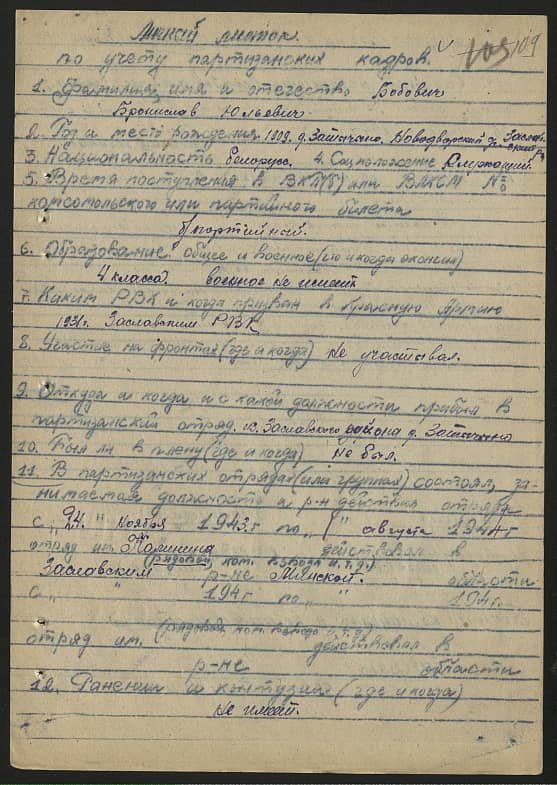 Личный листок
по учету партизанских кадров. 109 109
1. Фамилия, имя и отчество Бобович
Бронислав Юльевич
2. Год и место рождения 1909. д. Затычено, Новодворский Заслав-
3. Национальность белорус. 4. Соцположение Служащий.
5. Время поступления в ВКП(б) или ВЛКСМ №
комсомольского или партийного билета
б/партийный.
6. Образование общее и военное (что и когда окончил)
4 класса. военное не имеет
7. Каким РВК и когда призван в Красную Армию
1931г. Заславским РВК
8. Участие на фронтах (где и когда) не участвовал.
9. Откуда и когда и с какой должности прибыл в
партизанский отряд. из Заславского района д. Затычено
10. Был ли в плену (где и когда) не был.
11. В партизанских отрядах (или группах) состоял, за-
нимаемая должность и р-н действия отряда
с „24" ноября 1943г по „1" августа 1944г
отряд им. Калинина действовал в
(рядовой, ком. взвода и.т.д.)
Заславским р-не Минской. области
с „ " 194 г по „ " 194 г.
(рядовой, ком. взвода и.т.д.)
отряд им. действовал в
р-не области
12. Ранения и контузии (где и когда)
не имеет.